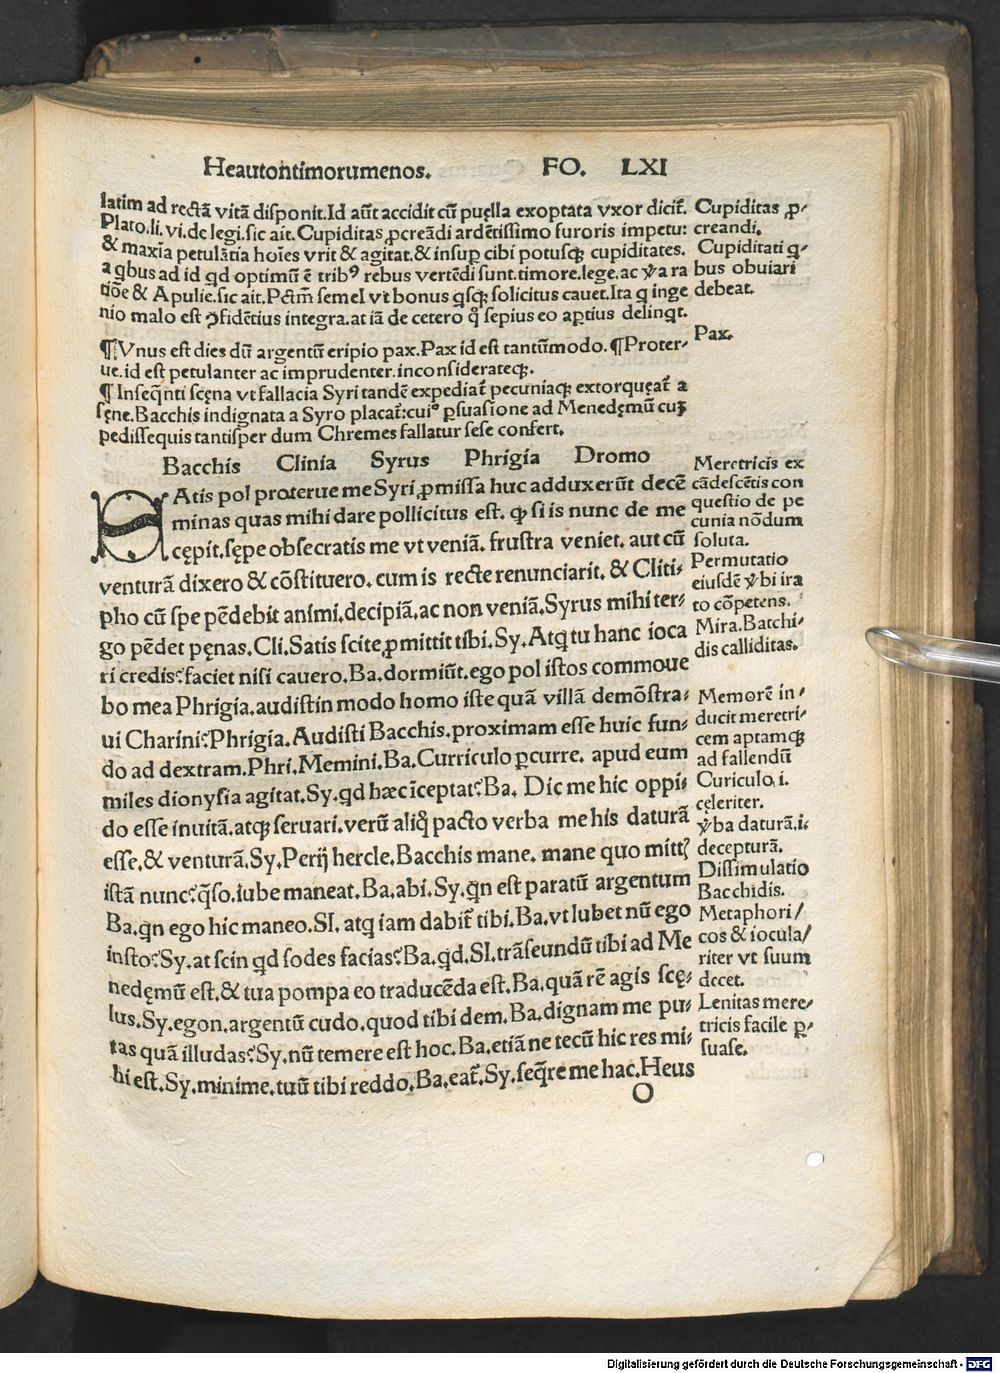 Heautontimorumenos. FO. LXI
latim ad rectā vitā disponit. Id aūt accidit cū puella exoptata vxor dicit᷑.
Plato. li. vi. de legi. sic ait. Cupiditas ꝓcreādi ardētissimo furoris impetu:
& maxīa petulātia hoīes vrit & agitat. & insuꝑ cibi potusqꝫ cupiditates.
a qbus ad id qd optimū ē tribꝰ rebus vertēdi sunt. timore. lege. ac v̄a ra
tiōe & Apulie. sic ait. Pctm̄ semel vt bonus qsqꝫ solicitus cauet. Ita q inge
nio malo est ꝯfidētius integra. at iā de cetero q̄ sepius eo aptius delinqt.
¶ Vnus est dies dū argentū eripio pax. Pax id est tantūmodo. ¶ Proter⸗
ue. id est petulanter ac imprudenter. inconsiderateqꝫ.
¶ Inseqnti scęna vt fallacia Syri tandē expediat᷑ pecuniaqꝫ extorqueat᷑ a
sęne. Bacchis indignata a Syro placat᷑: cuiꝰ ꝑsuasione ad Menedęmū cuꝫ
pedissequis tantisper dum Chremes fallatur sese confert.
Bacchis Clinia Syrus Phrigia Dromo
SAtis pol proterue me Syri ꝓmissa huc adduxerūt decē
minas quas mihi dare pollicitus est. ꝙ si is nunc de me
cępit. sępe obsecratis me vt veniā. frustra veniet. aut cū
venturā dixero & cōstituero. cum is recte renunciarit. & Cliti⸗
pho cū spe pēdebit animi. decipiā. ac non veniā. Syrus mihi ter⸗
go pēdet pęnas. Cli. Satis scite ꝓmittit tibi. Sy. Atq tu hanc ioca
ri credis? faciet nisi cauero. Ba. dormiūt. ego pol istos commoue
bo mea Phrigia. audistin modo homo iste quā villā demōstra⸗
ui Charini? Phrigia. Audisti Bacchis. proximam esse huic fun⸗
do ad dextram. Phri. Memini. Ba. Curriculo ꝑcurre. apud eum
miles dionysia agitat. Sy. qd hæc iceptat? Ba. Dic me hic oppi⸗
do esse inuitā. atqꝫ seruari. verū aliq̄ pacto verba me his daturā
esse. & venturā. Sy. Perij hercle. Bacchis mane. mane quo mitt᷑
istā nunc? q̄so. iube maneat. Ba. abi. Sy. qn est paratū argentum
Ba. qn ego hic maneo. SI. atq iam dabit᷑ tibi. Ba. vt lubet nū ego
insto? Sy. at scin qd sodes facias? Ba. qd. SI. trāseundū tibi ad Me
nedęmū est. & tua pompa eo traducēda est. Ba. quā rē agis scę⸗
lus. Sy. egon. argentū cudo. quod tibi dem. Ba. dignam me pu⸗
tas quā illudas? Sy. nū temere est hoc. Ba. etiā ne tecū hic res mi⸗
hi est. Sy. minime. tuū tibi reddo. Ba. eat᷑. Sy. seq̄re me hac. Heus
O
Cupiditas ꝓ⸗
creandi.
Cupiditati q⸗
bus obuiari
debeat.
Pax.
Meretricis ex
cādescētis con
questio de pe
cunia nōdum
soluta.
Permutatio
eiusdē v̄bi ira
to cōpetens.
Mira. Batchi⸗
dis calliditas.
Memorē in⸗
ducit meretri⸗
cem aptamqꝫ
ad fallendū
Curiculo. i.
cęleriter.
v̄ba daturā. i⸗
decepturā.
Dissimulatio
Bacchidis.
Metaphori/
cos & iocula/
riter vt suum
decet.
Lenitas mere⸗
tricis facile ꝑ⸗
suase.
Digitalisierung gefördert durch die Deutsche Forschungsgemeinschaft - DFG